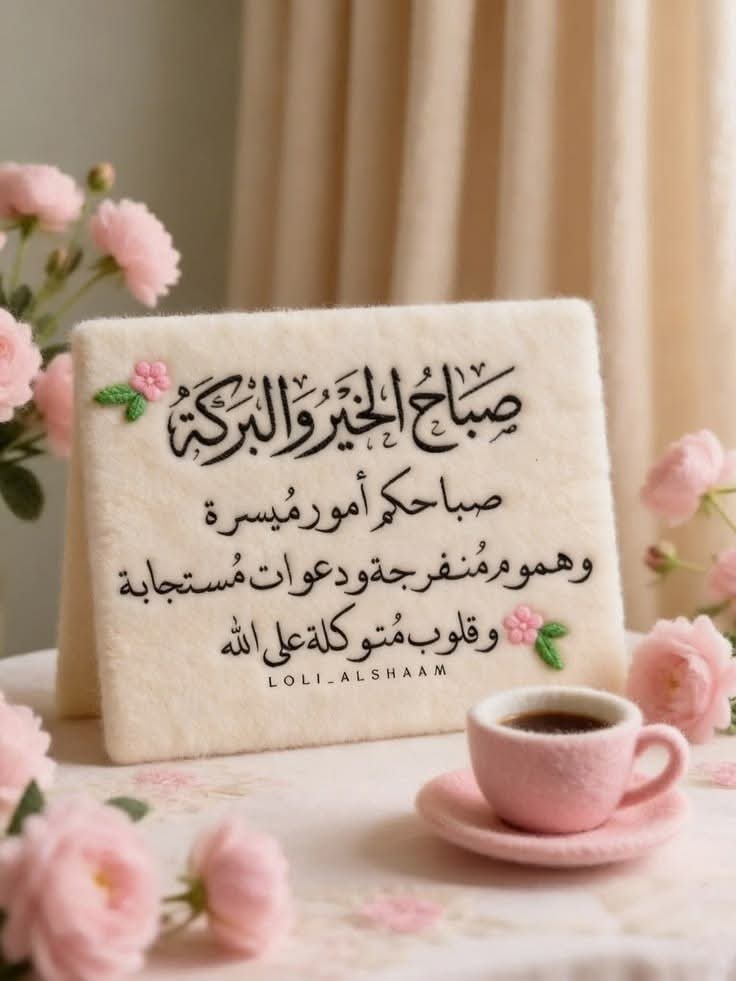 صَبَاحُ الخَيْرِ وَالبَرَكَةُ
صباحكم أمور مُيسرة
وهموم مُنفرجة ودعوات مُستجابة
وقلوب مُتوكلة على الله
LOLI_ALSHAAM